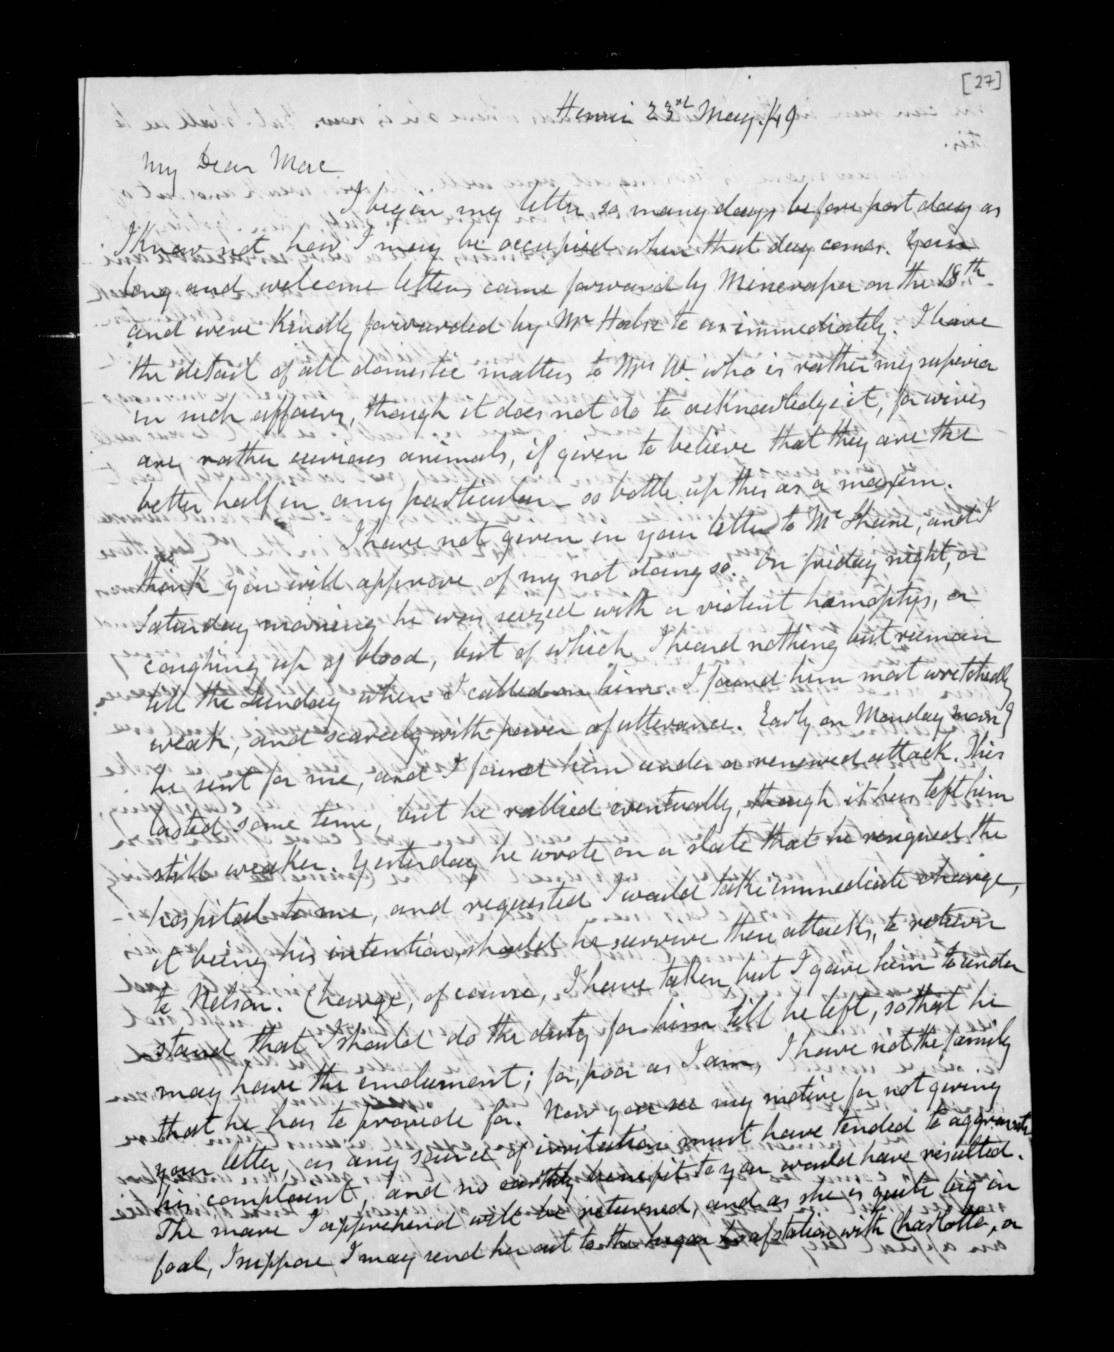 [27]
Henui 23rd May /49
My Dear Mac.
I begin my letter so many days before post day as
I know not how I may be occupied when that day comes. Your
long and welcome letters came forward by Minerapa on the 18th.
and were kindly forwarded by Mr Halse to us immediately. I have
the detail of all domestic matters to Mrs W. who is rather my superior
in such affairs, though it does not do to acknowledge it, for wives
are rather curious animals, if given to believe that they are the
better half in any particular - so bottle up this as a maxim.
I have not given in your letter to Mc Shane, and I
think you will approve of my not doing so. On friday night, or
Saturday morning he was seized with a violent hæmoptys, or
coughing up of blood, but of which I heard nothing but rumour
till the Sunday when I called on him. I found him most wretchedly
weak, and scarcely with power of utterance. Early on Monday morng
he sent for me, and I found him under a renewed attack. This
lasted some time, but he rallied eventually, though it has left him
still weaker. Yesterday he wrote on a slate that he resigned the
hospital to me, and requested I would take immediate charge,
it being his intention, should he survive these attacks, to return
to Nelson. Charge, of course, I have taken, but I gave him to under
stand that I should do the duty for him till he left, so that he
may have the emolument; for, poor as I am, I have not the family
that he has to provide for. Now you see my motive for not giving
your letter, as any source of irritation must have tended to aggravate
his complaint, and no earthly benefit to you would have resulted.
The mare I apprehend will be returned, and as she is quite big in
foal, I suppose I may send her out to the station with Charlotte, or